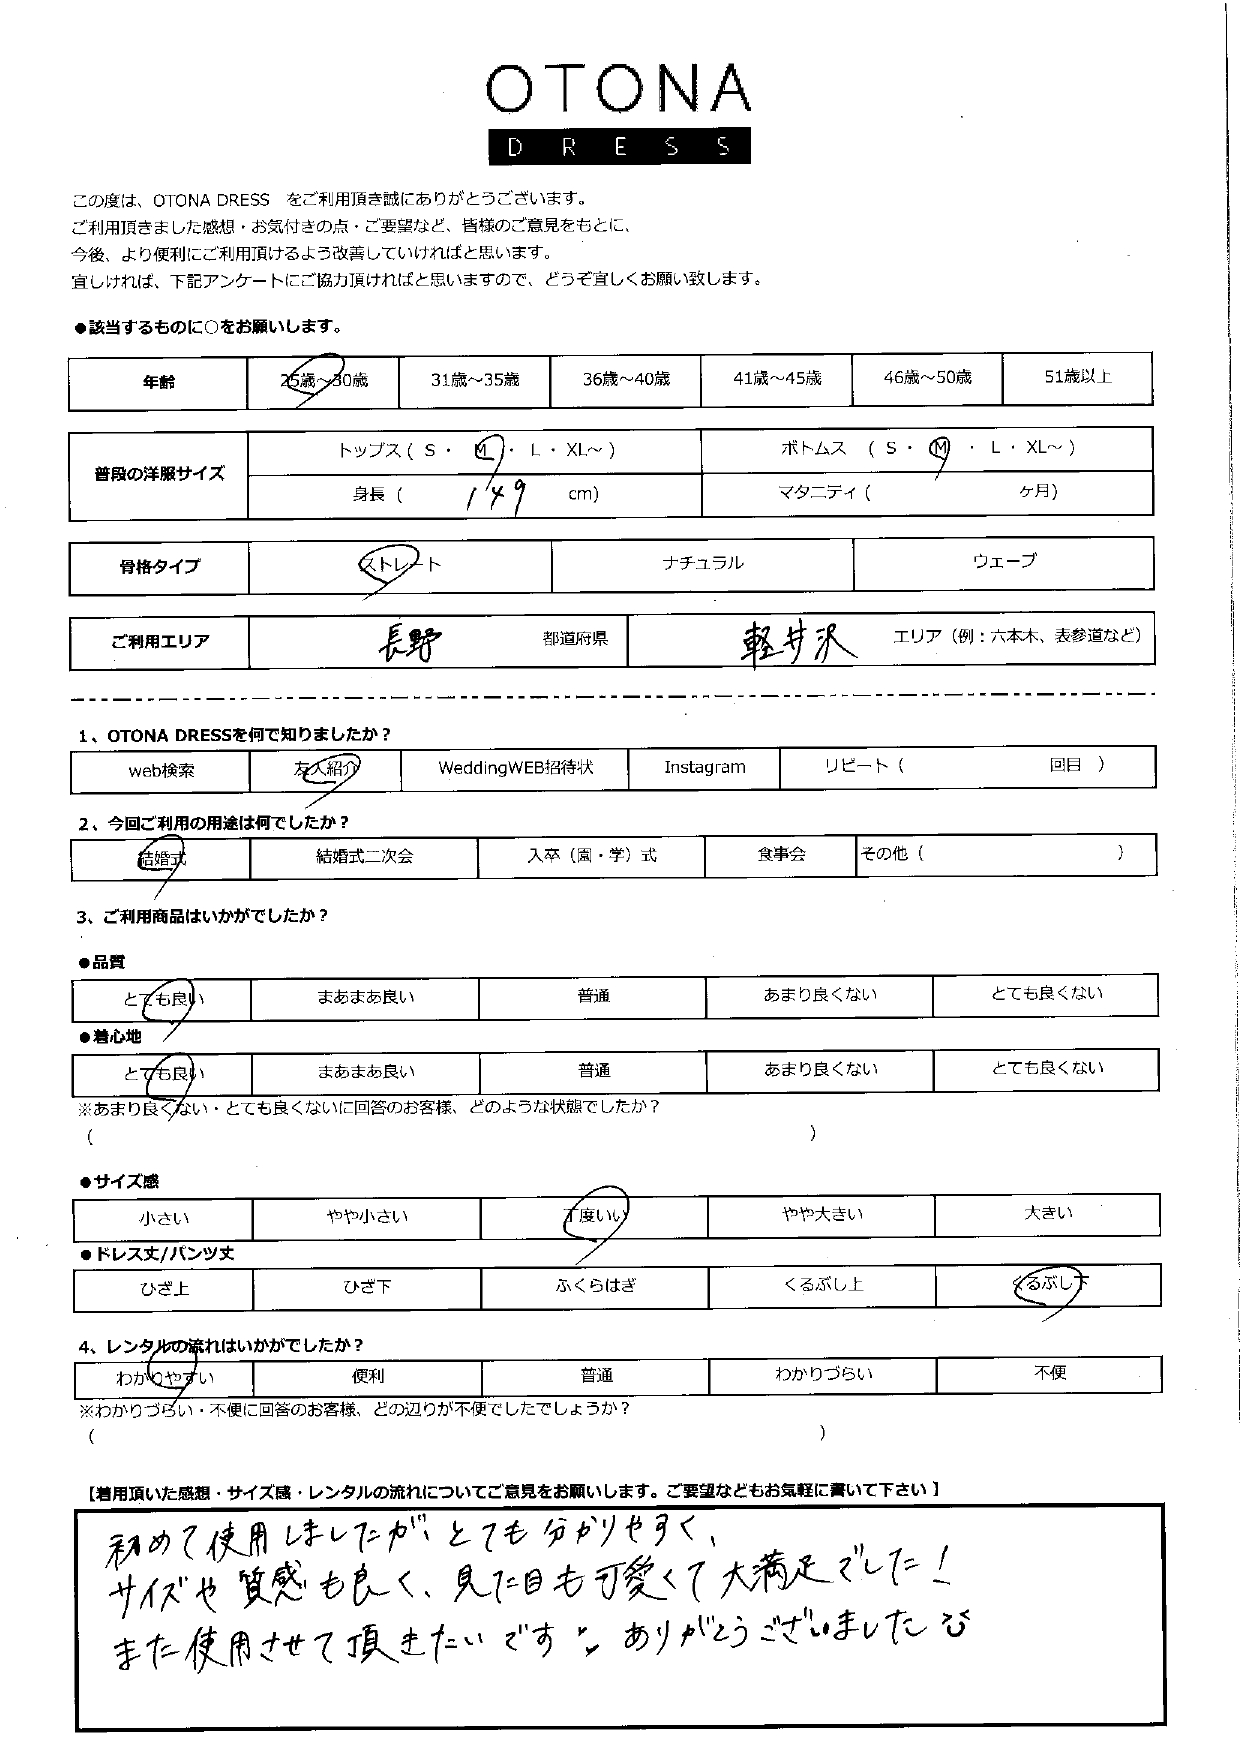 OTONA
DRESS
この度は、OTONA DRESS をご利用頂き誠にありがとうございます。
ご利用頂きました感想・お気付きの点・ご要望など、皆様のご意見をもとに、
今後、より便利にご利用頂けるよう改善していければと思います。
宜しければ、下記アンケートにご協力頂ければと思いますので、どうぞ宜しくお願い致します。
●該当するものに○をお願いします。
年齢 25歳～30歳 31歳～35歳 36歳～40歳 41歳～45歳 46歳～50歳 51歳以上
普段の洋服サイズ トップス ( S ・ M ・ L ・ XL～ ) ボトムス ( S ・ M ・ L ・ XL～ )
身長 ( 149 cm) マタニティ ( ケ月)
骨格タイプ ストレート ナチュラル ウェーブ
ご利用エリア 長野 都道府県 軽井沢 エリア（例：六本木、表参道など）
1、OTONA DRESSを何で知りましたか？
web検索 友人紹介 WeddingWEB招待状 Instagram リピート（ 回目 ）
2、今回ご利用の用途は何でしたか？
結婚式 結婚式二次会 入卒（園・学）式 食事会 その他（ ）
3、ご利用商品はいかがでしたか？
●品質
とても良い まあまあ良い 普通 あまり良くない とても良くない
●着心地
とても良い まあまあ良い 普通 あまり良くない とても良くない
※あまり良くない・とても良くないに回答のお客様、どのような状態でしたか？
（ ）
●サイズ感
小さい やや小さい 丁度いい やや大きい 大きい
●ドレス丈/パンツ丈
ひざ上 ひざ下 ふくらはぎ くるぶし上 くるぶし下
4、レンタルの流れはいかがでしたか？
わかりやすい 便利 普通 わかりづらい 不便
※わかりづらい・不便に回答のお客様、どの辺りが不便でしたでしょうか？
（ ）
【着用頂いた感想・サイズ感・レンタルの流れについてご意見をお願いします。ご要望などもお気軽に書いて下さい】
初めて使用しましたが、とても分かりやすく、
サイズや質感も良く、見た目も可愛くて大満足でした！
また使用させて頂きたいです ありがとうございました